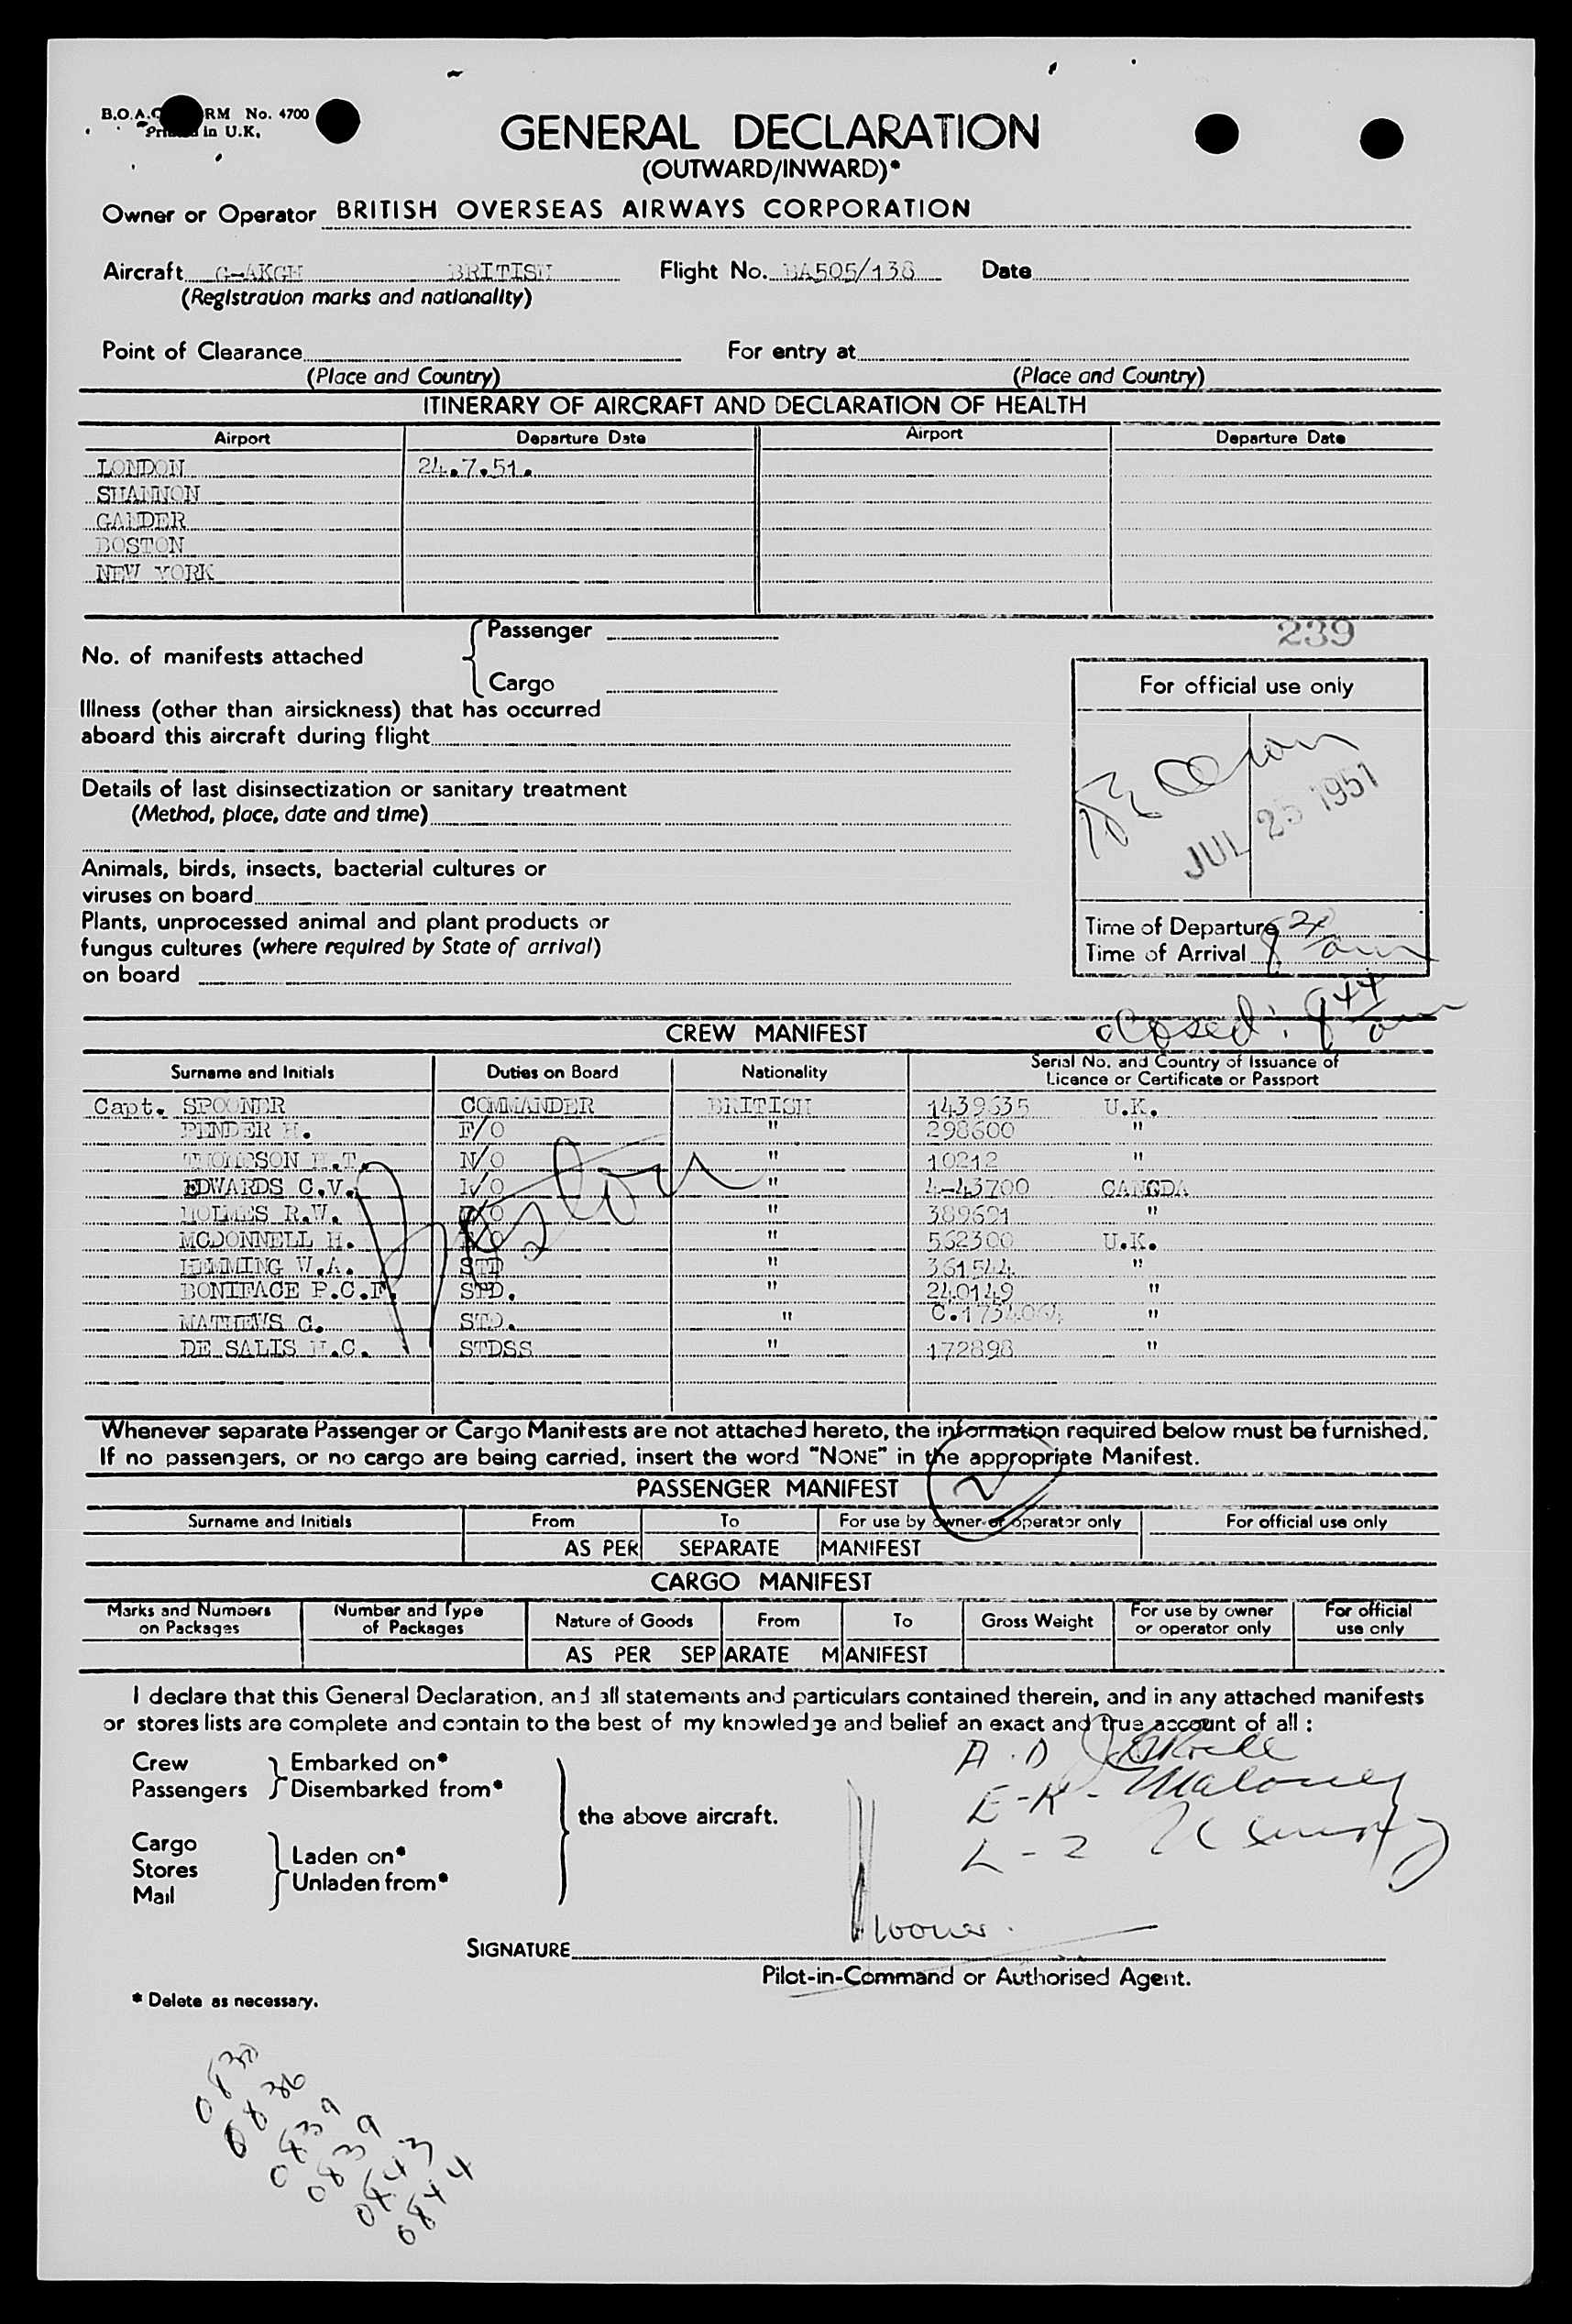 B.O.A.C RM No. 4700
in U.K.
GENERAL DECLARATION
(OUTWARD/INWARD)*
Owner or Operator BRITISH OVERSEAS AIRWAYS CORPORATION
Aircraft G-AKGH BRITISH Flight No. BA505/138 Date
(Registration marks and nationality)
Point of Clearance For entry at
(Place and Country) (Place and Country)
ITINERARY OF AIRCRAFT AND DECLARATION OF HEALTH
Airport Departure Date Airport Departure Date
LONDON 24.7.51.
SHANNON
GANDER
BOSTON
NEW YORK
239
No. of manifests attached { Passenger
Cargo
For official use only
Illness (other than airsickness) that has occurred
aboard this aircraft during flight
Details of last disinsectization or sanitary treatment
(Method, place, date and time)
JUL 25 1951
Animals, birds, insects, bacterial cultures or
viruses on board
Plants, unprocessed animal and plant products or
fungus cultures (where required by State of arrival)
on board
Time of Departure
Time of Arrival 8 24 am
closed: 8 44 am
CREW MANIFEST
Surname and Initials Duties on Board Nationality Serial No. and Country of Issuance of
Licence or Certificate or Passport
Capt. SPOONER COMMANDER BRITISH 1439635 U.K.
PENDER H. F/O " 298600 "
THOMPSON H.T. N/O " 10212 "
EDWARDS C.V. " 4-43700 CANGDA
HOLMES R.W. " 389691 "
MCDONNELL H. " 562300 U.K.
HEMMING W.A. STD " 361544 "
BONIFACE P.C.F. STD. " 240149 "
MATHEWS G. STD. " C.1734064 "
DE SALIS H.C. STDSS " 172898 "
Boston
Whenever separate Passenger or Cargo Manifests are not attached hereto, the information required below must be furnished.
If no passengers, or no cargo are being carried, insert the word "NONE" in the appropriate Manifest.
PASSENGER MANIFEST
Surname and Initials From To For use by owner or operator only For official use only
AS PER SEPARATE MANIFEST
CARGO MANIFEST
Marks and Numbers on Packages Number and Type of Packages Nature of Goods From To Gross Weight For use by owner or operator only For official use only
AS PER SEPARATE MANIFEST
I declare that this General Declaration, and all statements and particulars contained therein, and in any attached manifests
or stores lists are complete and contain to the best of my knowledge and belief an exact and true account of all :
Crew Embarked on*
Passengers Disembarked from*
the above aircraft.
Cargo
Stores
Mail
Laden on*
Unladen from*
A.D
E-K- Maloney
L-Z
Spooner.
SIGNATURE
Pilot-in-Command or Authorised Agent.
* Delete as necessary.
0830
0836
0839
0839
0843
0844